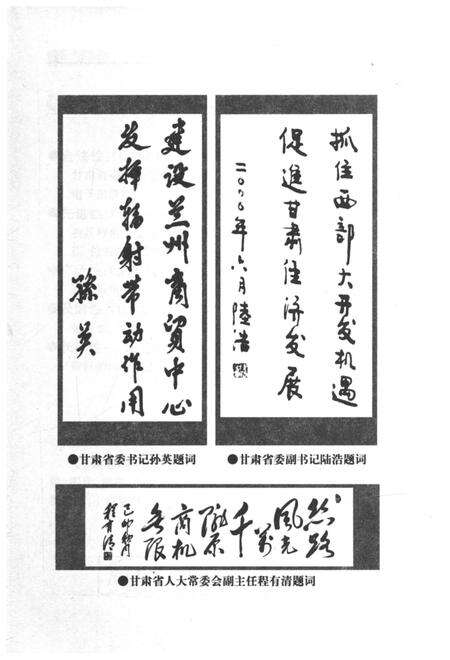 建设兰州商贸中心
发挥辐射带动作用
孙英
●甘肃省委书记孙英题词
抓住西部大开发机遇
促進甘肅经济发展
二〇〇〇年六月陸浩
●甘肃省委副书记陆浩题词
丝路
风光
万
千
陇原
商机
无限
己卯
程有清
●甘肃省人大常委会副主任程有清题词